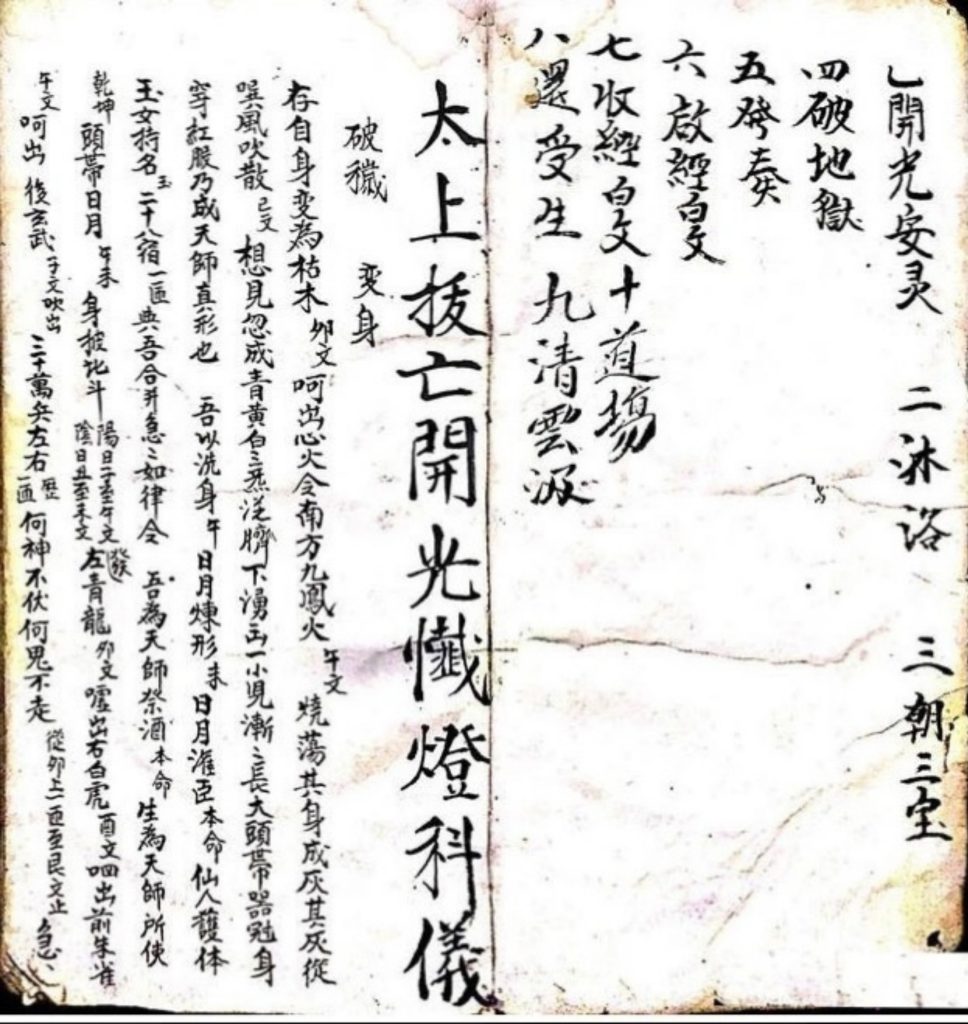 乚開光安灵 二沐浴 三朝三宝
四破地獄
五發奏
六啟經白文
七收經白文 十道場
八還受生 九清雲汲
太上拔亡開光懺燈科儀
破穢 变身
存自身变為枯木 卯文 呵出心火令南方九鳳火 午文 燒蕩其身成灰其灰從
噀風吹散 己文 想見忽成青黄白三炁從臍下湧出一小児漸〻長大頭帯 冠身
穿紅服乃成天師真形也 吾以洗身 午 日月煉形 未 日月潅臣 本命 仙人護体
玉女持名 玉 二十八宿 一匝 與吾合并急〻如律令 吾為天師祭酒 本命 生為天師所使
乾坤 頭帯日月 午未 身披北斗 陽日子至午文 陰日丑至未文 左青龍 發 卯文 噓出右白虎 酉文 呬出前朱准
午文 呵出 後玄武 子文吹出 三十萬兵左右 一匝 何神不伏何鬼不走 從卯上一匝至艮文止 急〻